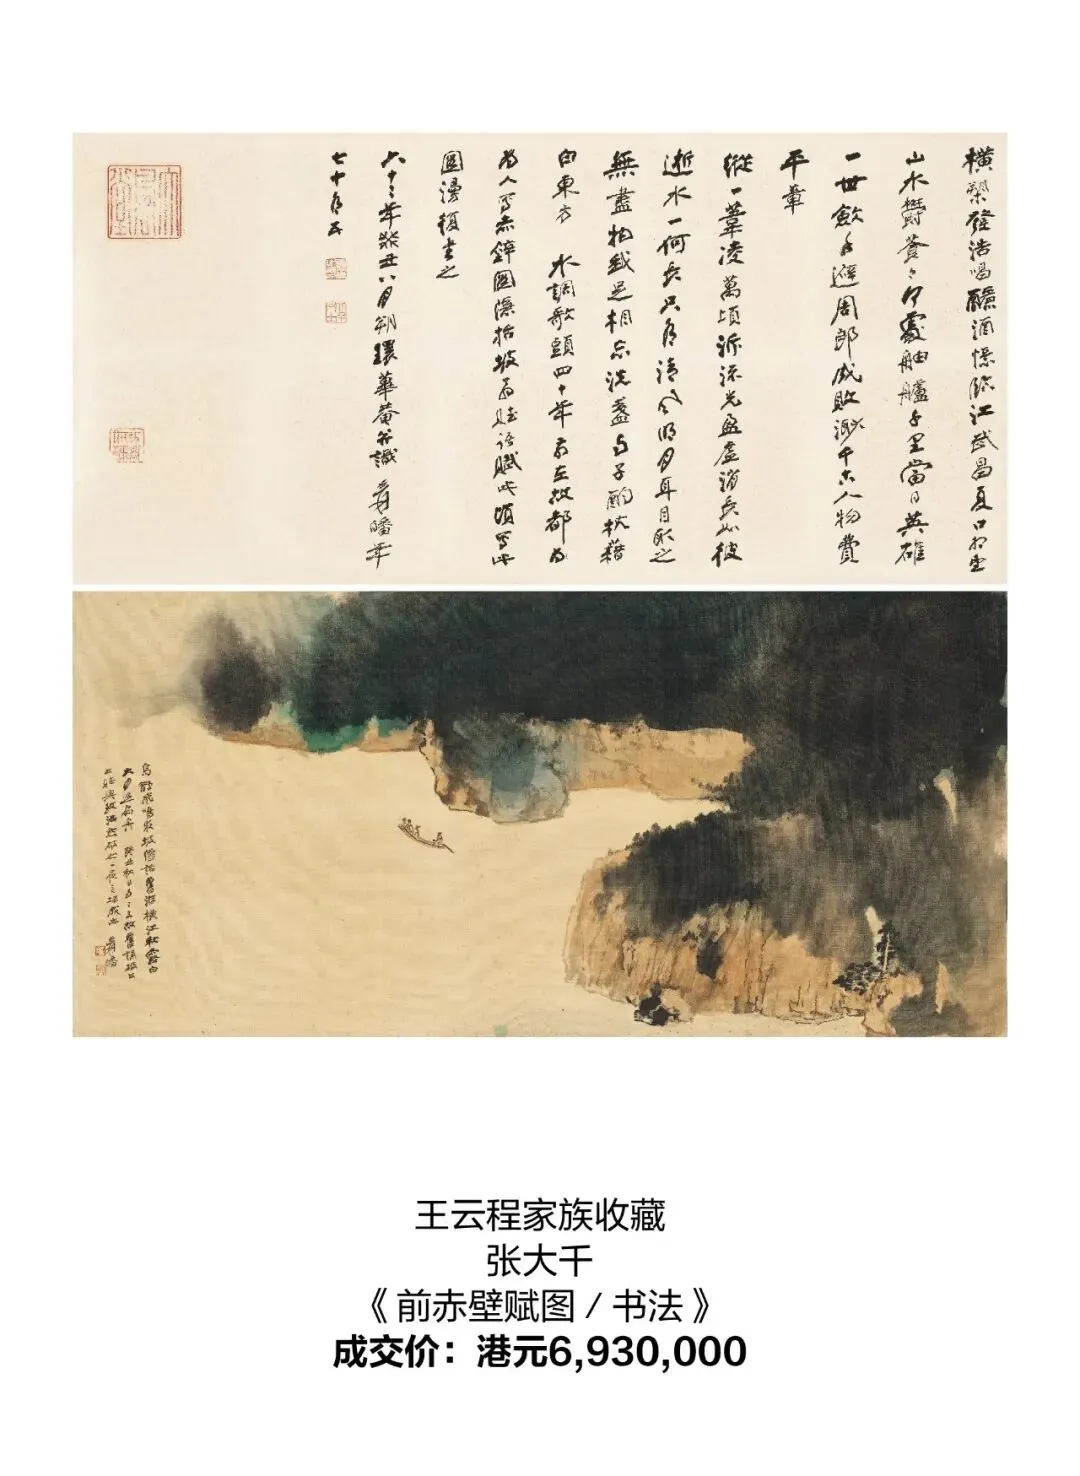 橫槊發浩唱釃酒憬臨江武昌夏口相望
山水鬱蒼々何處舳艫千里當日英雄
一世飲馬避周郎成敗渺千古人物費
平章
縱一葦凌萬頃泝流光盈虛消長如彼
逝水一何長只有清風明月耳目取之
無盡物我足相忘洗盞與子酌枕藉
白東方 水調歌頭四十年前在故都為
為人寫赤壁圖隱括坡翁賦語賦此頃寫此
圖漫復書之
六十二年癸丑八月朔環蓽菴并識 爰皤年
七十有五
王云程家族收藏
张大千
《 前赤壁赋图 / 书法 》
成交价：港元6,930,000